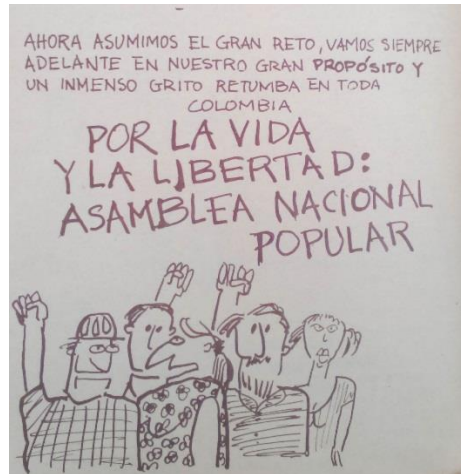 AHORA ASUMIMOS EL GRAN RETO, VAMOS SIEMPRE
ADELANTE EN NUESTRO GRAN PROPÓSITO Y
UN INMENSO GRITO RETUMBA EN TODA
COLOMBIA
POR LA VIDA
Y LA LIBERTAD:
ASAMBLEA NACIONAL
POPULAR